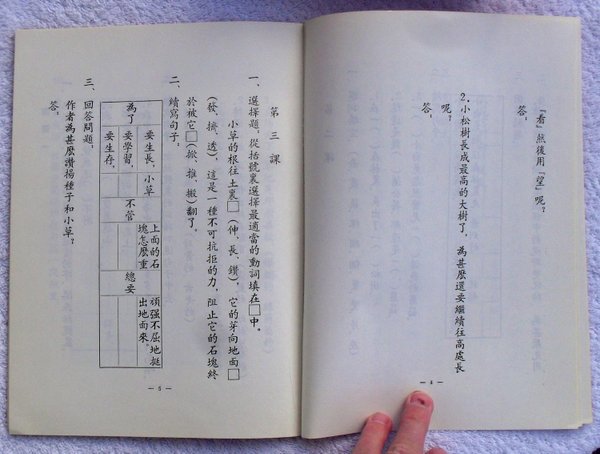 「看」然後用「望」呢?
答:
2.小松樹長成最高的大樹了,為甚麼還要繼續往高處長
呢?
答:
— 4 —
第三課
一、選擇題,從括號裏選擇最適當的動詞填在□中。
小草的根往土裏□(伸、長、鑽),它的芽向地面□
(發、擠、透),這是一種不可抗拒的力,阻止它的石塊終
於被它□(掀、推、搬)翻了。
二、續寫句子。
為了
要生長,小草
要學習,
要生存,
不管
上面的石
塊怎麼重
總要
頑强不屈地挺
出地面來。
三、回答問題。
作者為甚麼讚揚種子和小草?
答:
— 5 —